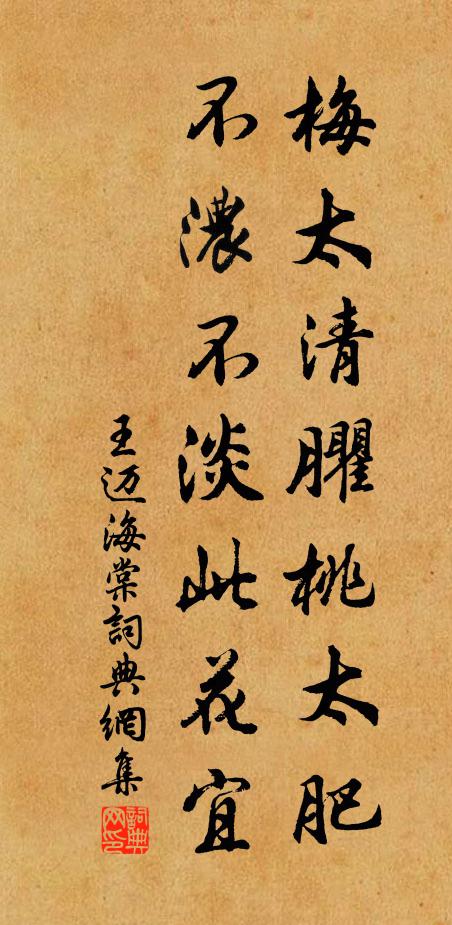 梅太清臞桃太肥
不濃不淡此花宜
王迈海棠詞典網集
詞典網印